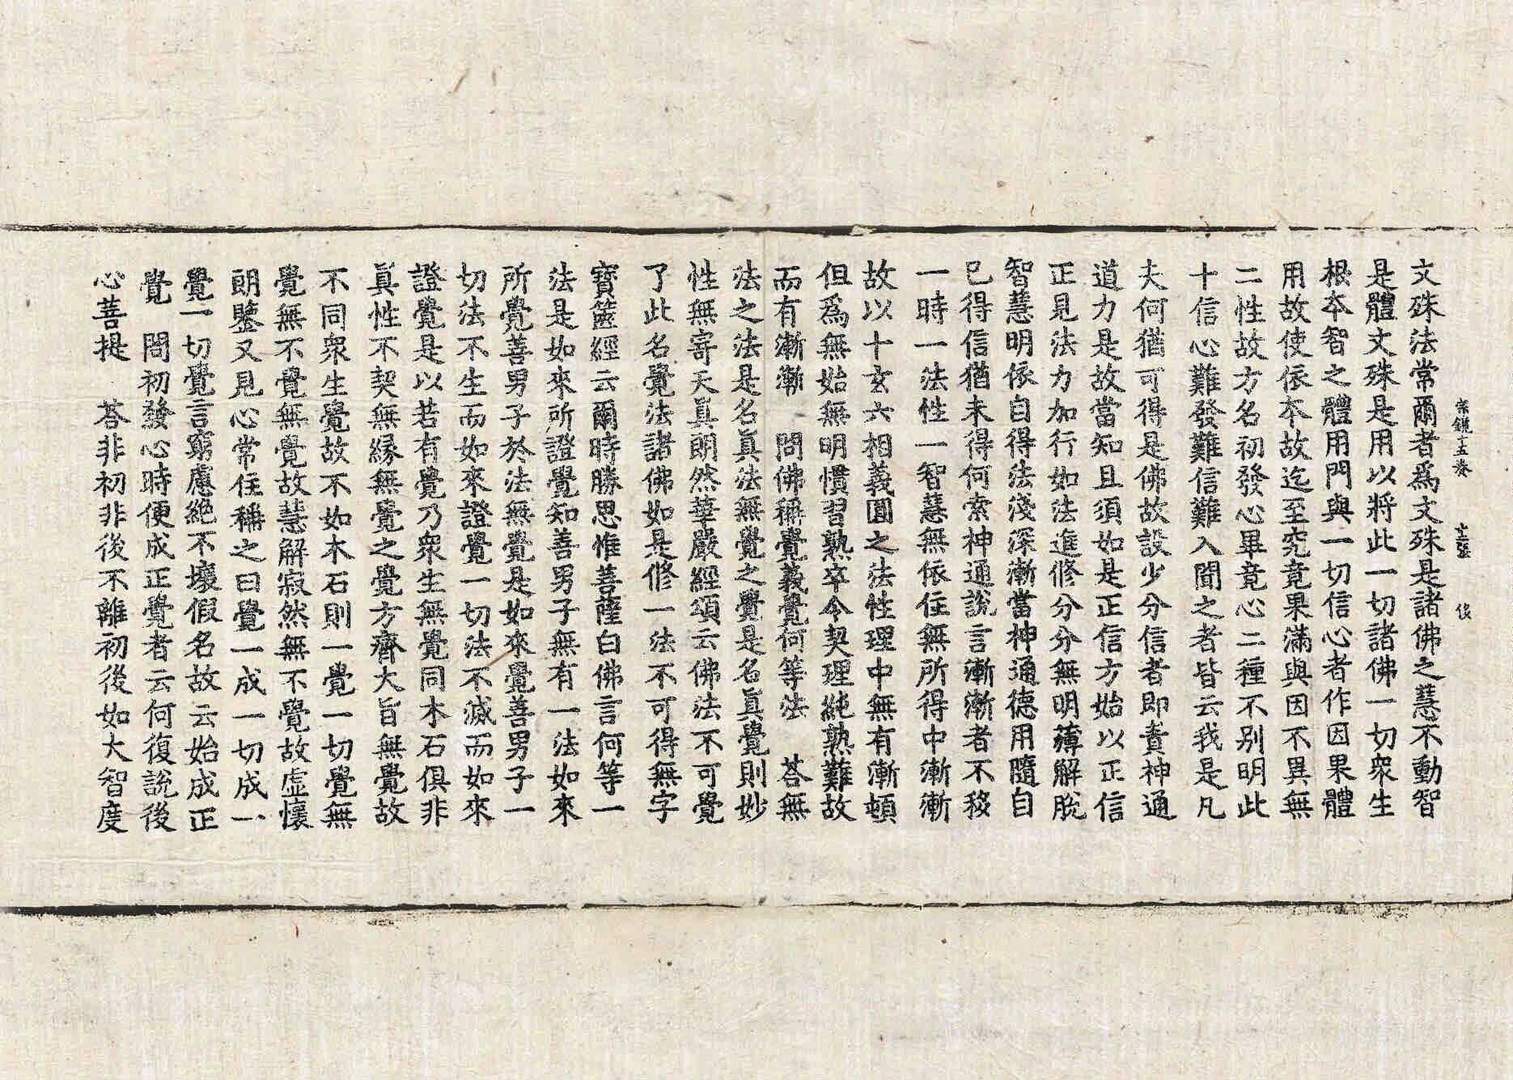 宗鏡十五卷 十二張 俊
文殊法常爾者爲文殊是諸佛之慧不動智
是體文殊是用以將此一切諸佛一切衆生
根本智之體用門與一切信心者作因果體
用故使依本故迄至究竟果滿與因不異無
二性故方名初發心畢竟心二種不别明此
十信心難發難信難入聞之者皆云我是凡
夫何猶可得是佛故設少分信者即責神通
道力是故當知且須如是正信方始以正信
正見法力加行如法進修分分無明薄解脫
智慧明依自得法淺深漸當神通德用隨自
已得信猶未得何索神通說言漸漸者不移
一時一法性一智慧無依住無所得中漸漸
故以十玄六相義圓之法性理中無有漸頓
但爲無始無明慣習熟卒令契理純熟難故
而有漸漸 問佛稱覺義覺何等法 荅無
法之法是名眞法無覺之覺是名眞覺則妙
性無寄天眞朗然華嚴經頌云佛法不可覺
了此名覺法諸佛如是修一法不可得無字
寶篋經云爾時勝思惟菩薩白佛言何等一
法是如來所證覺知善男子無有一法如來
所覺善男子於法無覺是如來覺善男子一
切法不生而如來證覺一切法不滅而如來
證覺是以若有覺乃衆生無覺同木石俱非
眞性不契無緣無覺之覺方齊大旨無覺故
不同衆生覺故不如木石則一覺一切覺無
覺無不覺無覺故慧解寂然無不覺故虛懷
朗鑒又見心常住稱之曰覺一成一切成一
覺一切覺言窮慮絶不壞假名故云始成正
覺 問初發心時便成正覺者云何復說後
心菩提 荅非初非後不離初後如大智度